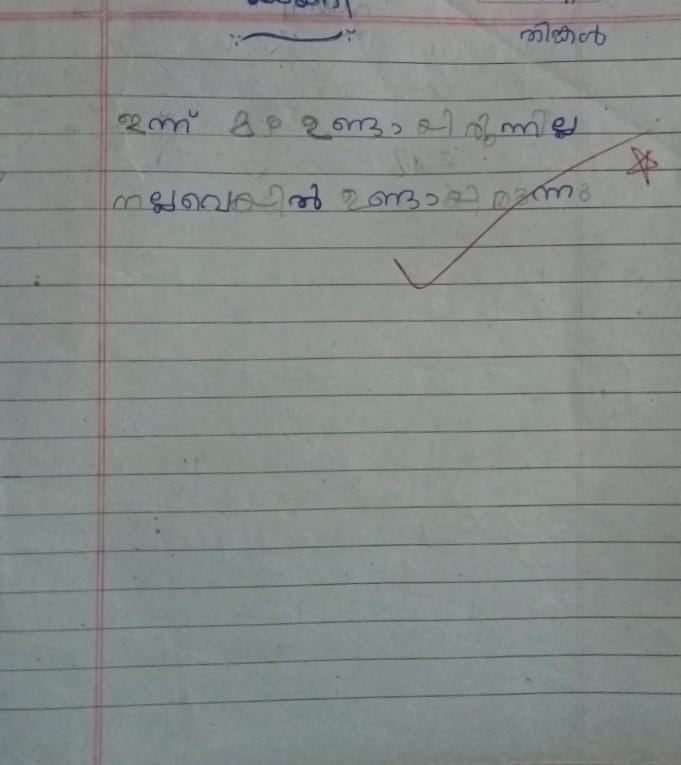 തിങ്കൾ
ഇന്ന് മഴ ഉണ്ടായിരുന്നില്ല
നല്ലവെയിൽ ഉണ്ടായിരുന്നു